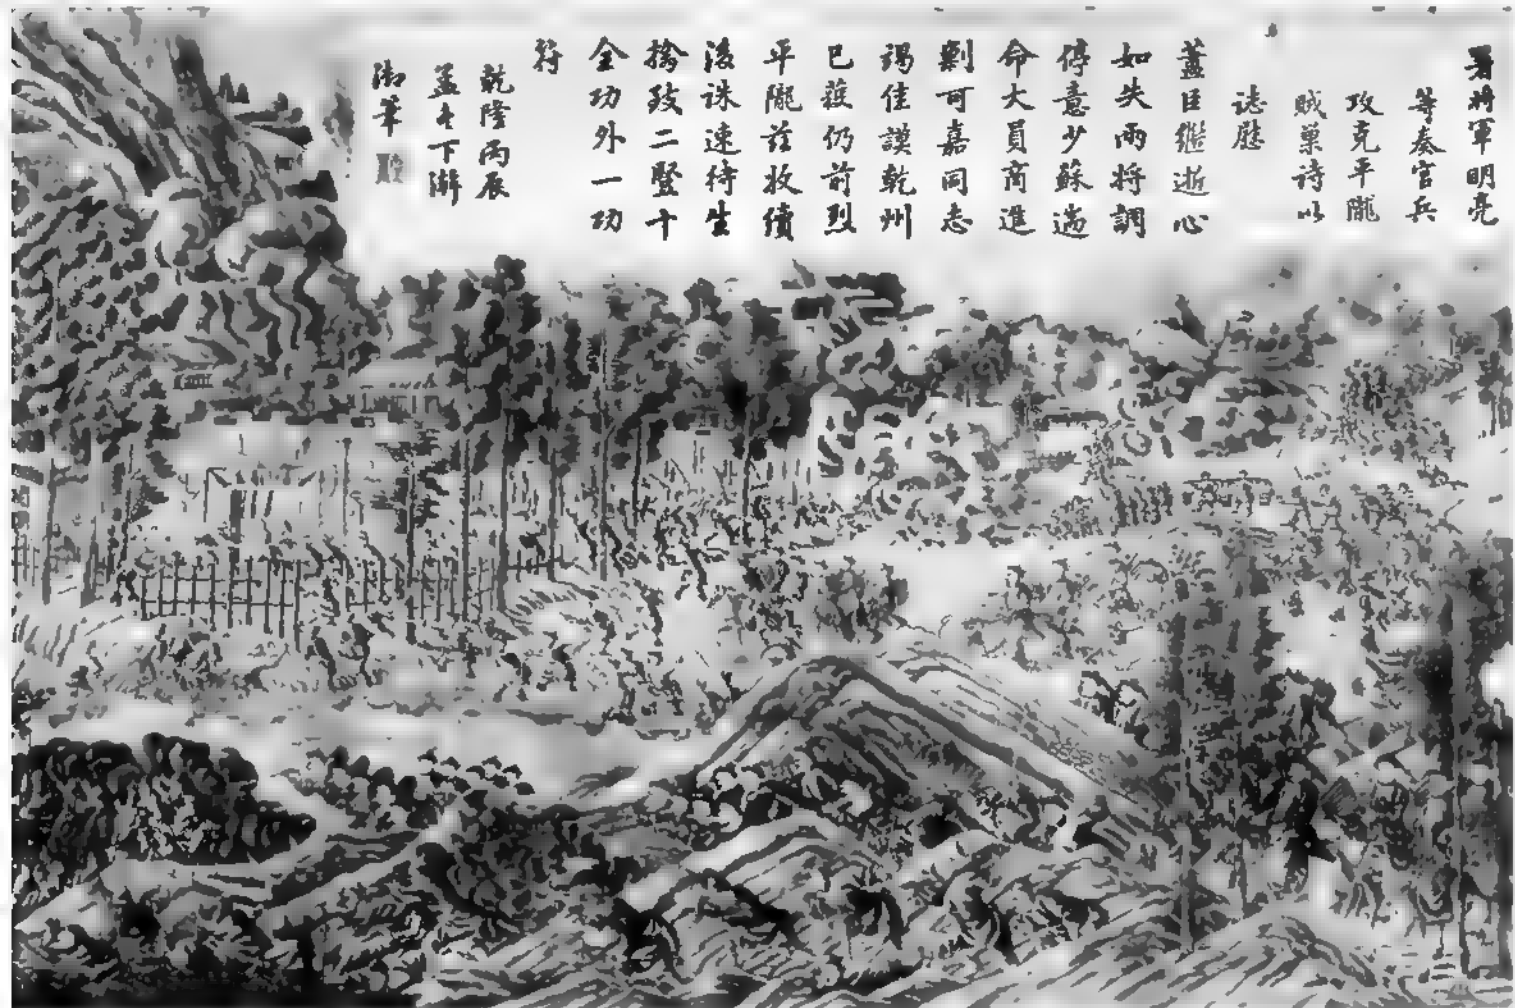 署將軍明亮
等奏官兵
攻克平隴
賊巢詩以
誌慰
藎臣繼逝心
如失兩將調
停意少蘇遄
命大員商進
剿可嘉同志
竭佳謨乾州
已獲仍前烈
平隴茲收續
後誅速待生
擒致二豎十
全功外一功
符
乾隆丙辰
孟冬下澣
御筆